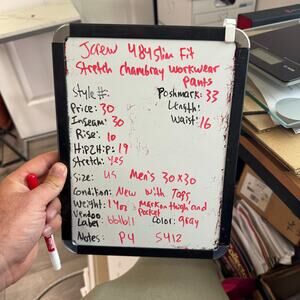 Jcrew 484 Slim Fit
Stretch chambray workwear
pants
Style #:
Poshmark: 33
Price: 30
Length:
Inseam: 30
Waist: 16
Rise: 10
Hip2Hip: 19
Stretch: yes
Size: US Men's 30x30
Condition: New with Tags
Weight: 14oz
Mark on thigh and
Pocket
Vendoo
Label:
Color: gray
Notes: P4 S412